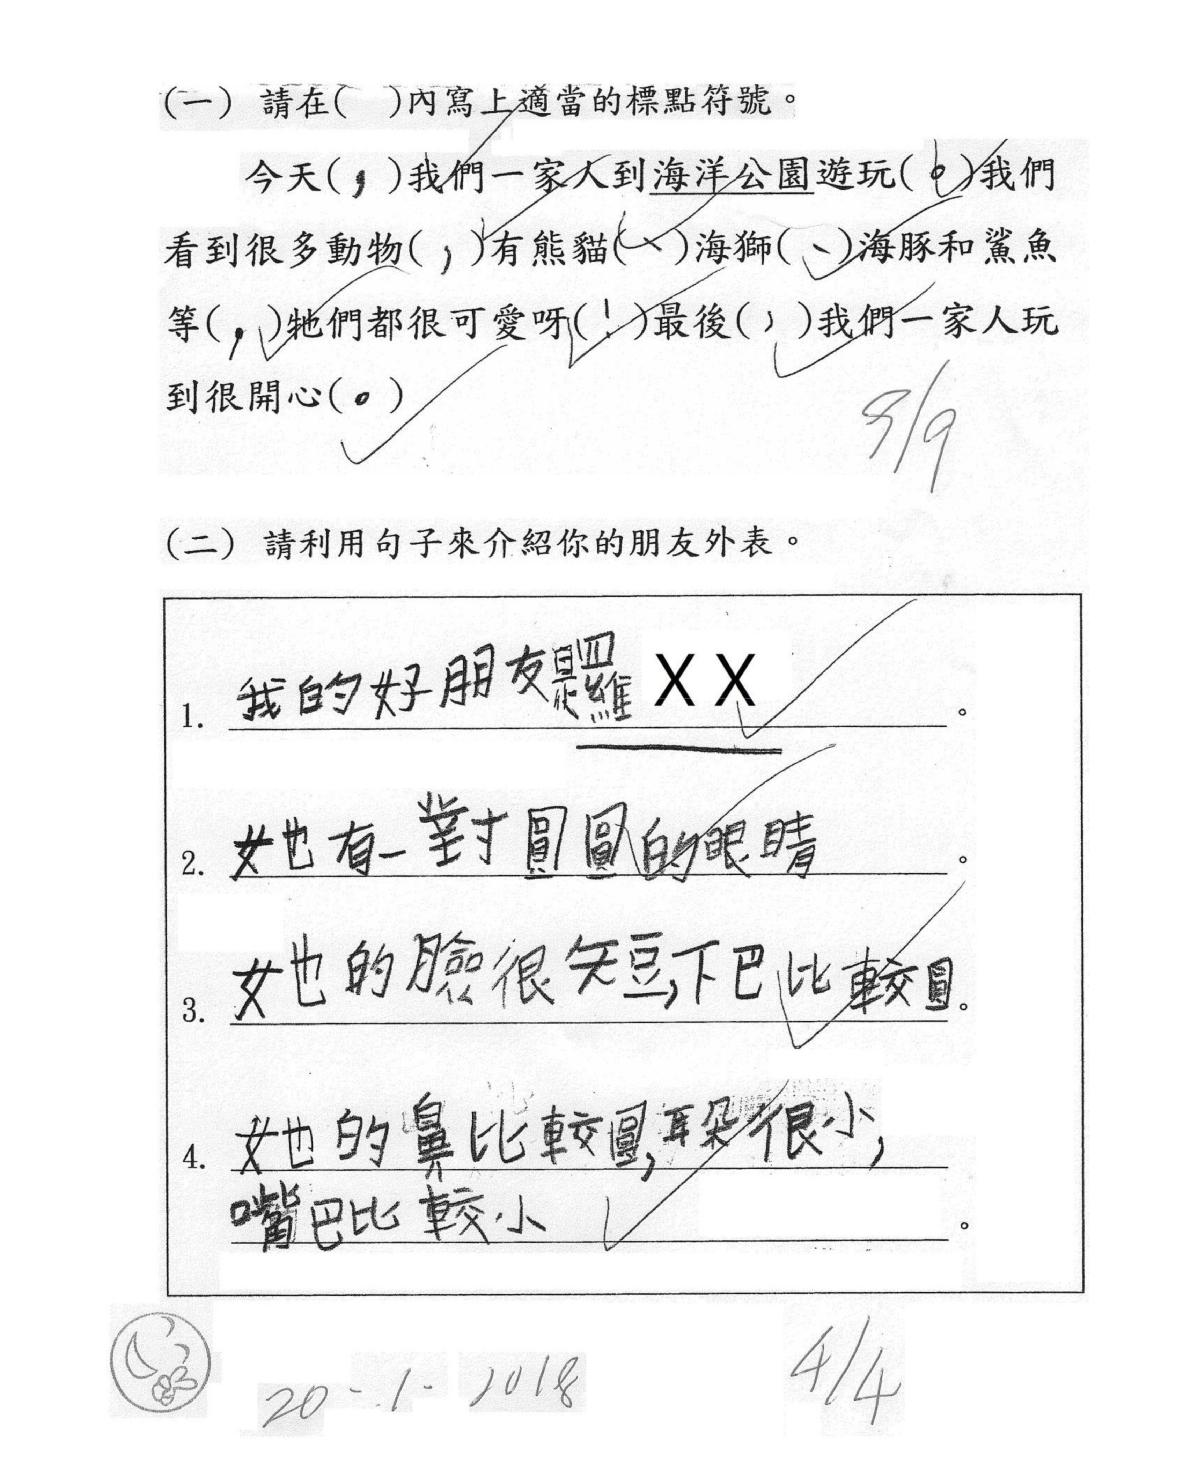 (一) 請在( )內寫上適當的標點符號。
今天(，)我們一家人到海洋公園遊玩(。)我們
看到很多動物(，)有熊貓(、)海獅(、)海豚和鯊魚
等(，)牠們都很可愛呀(！)最後(，)我們一家人玩
到很開心(。)
9/9
(二) 請利用句子來介紹你的朋友外表。
1. 我的好朋友是羅XX。
2. 她有一對圓圓的眼睛。
3. 她的臉很短，下巴比較圓。
4. 她的鼻比較圓，耳朵很小，
嘴巴比較小。
20-1-2018
4/4